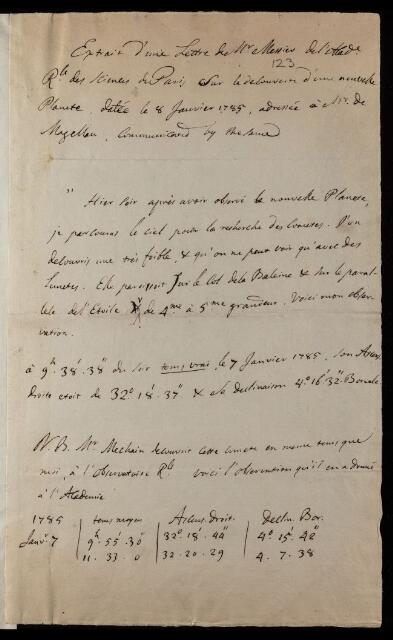 Extrait d'une Lettre de Mr. Messier de l'Acade.
123
Rle. des Sciences de Paris sur la découverte d'une nouvelle
Planete, datée le 8 Janvier 1785, adressée à Mr. de
Magellan, Communicated by the same
" Hier soir après avoir observé la nouvelle Planete,
je parcourus le ciel pour la recherche des Cometes. J'en
découvris une très foible, & qu'on ne peut voir qu'avec des
Lunetes. Elle paroissoit sur le Col de la Baleine & sur le paral-
lele de l'Etoile de 4me à 5me grandeur. Voici mon obser-
vation.
à 9h. 38'. 38" du soir tems vrai, le 7 Janvier 1785, son Ascen.
droite étoit de 32° 18'. 37" & sa declinaison 4° 16' 32" Boreale.
N.B. Mr. Mechain decouvrit cette comete en meme tems que
moi, à l'Observatoire Rle. Voici l'observation qu'il en a donné
à l'Academie
1785 tems moyen Ascens. droit. Declin. Bor.
Janvr. 7 9h. 55'. 30" 32° 18'. 44" 4° 15'. 42"
11. 33. 0 32. 20. 29 4. 7. 38